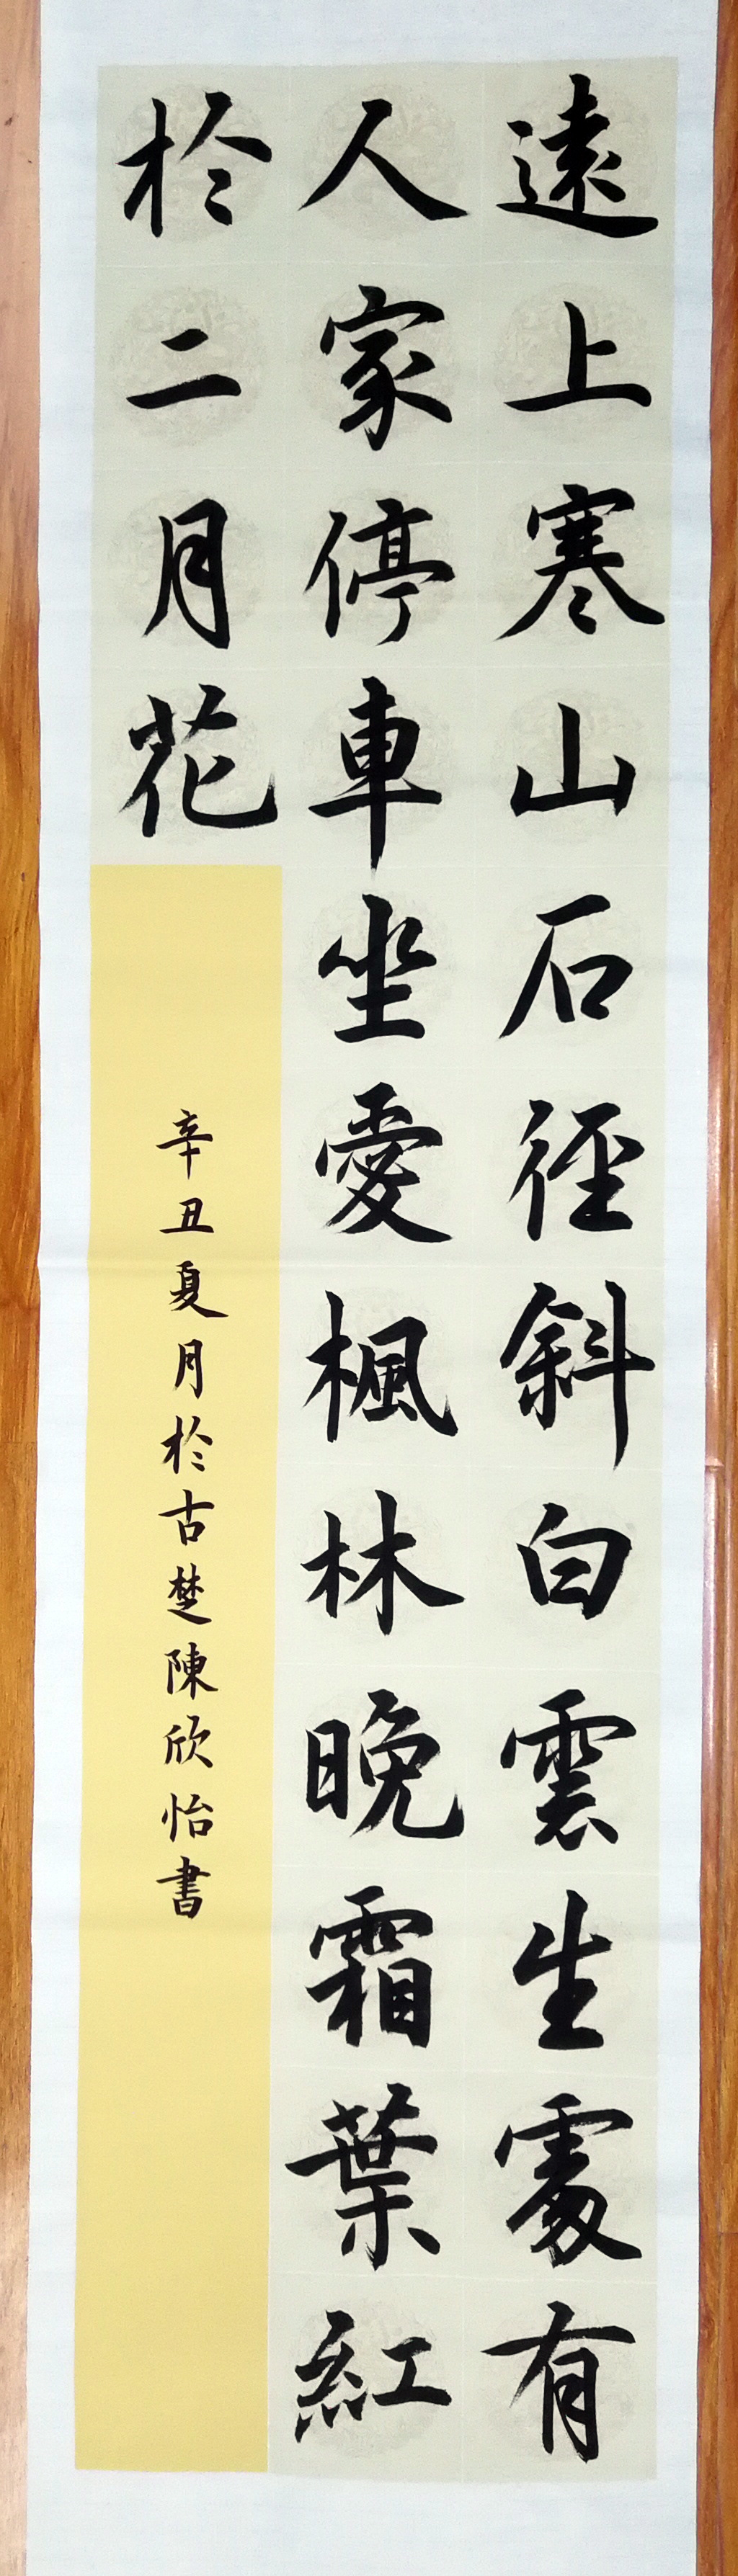 遠上寒山石徑斜白雲生處有
人家停車坐愛楓林晚霜葉紅
於二月花
辛丑夏月於古楚陳欣怡書